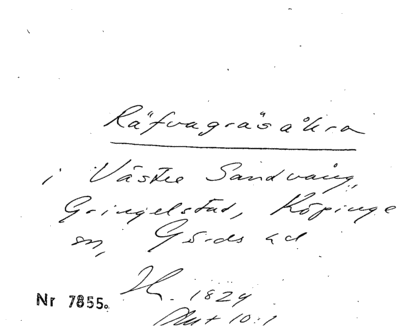 Räfvagräsåkra
i Västre Sandvång,
Gringelstad, Köpinge
sn, Gärds hd
1829
Nr 7855.
10:1